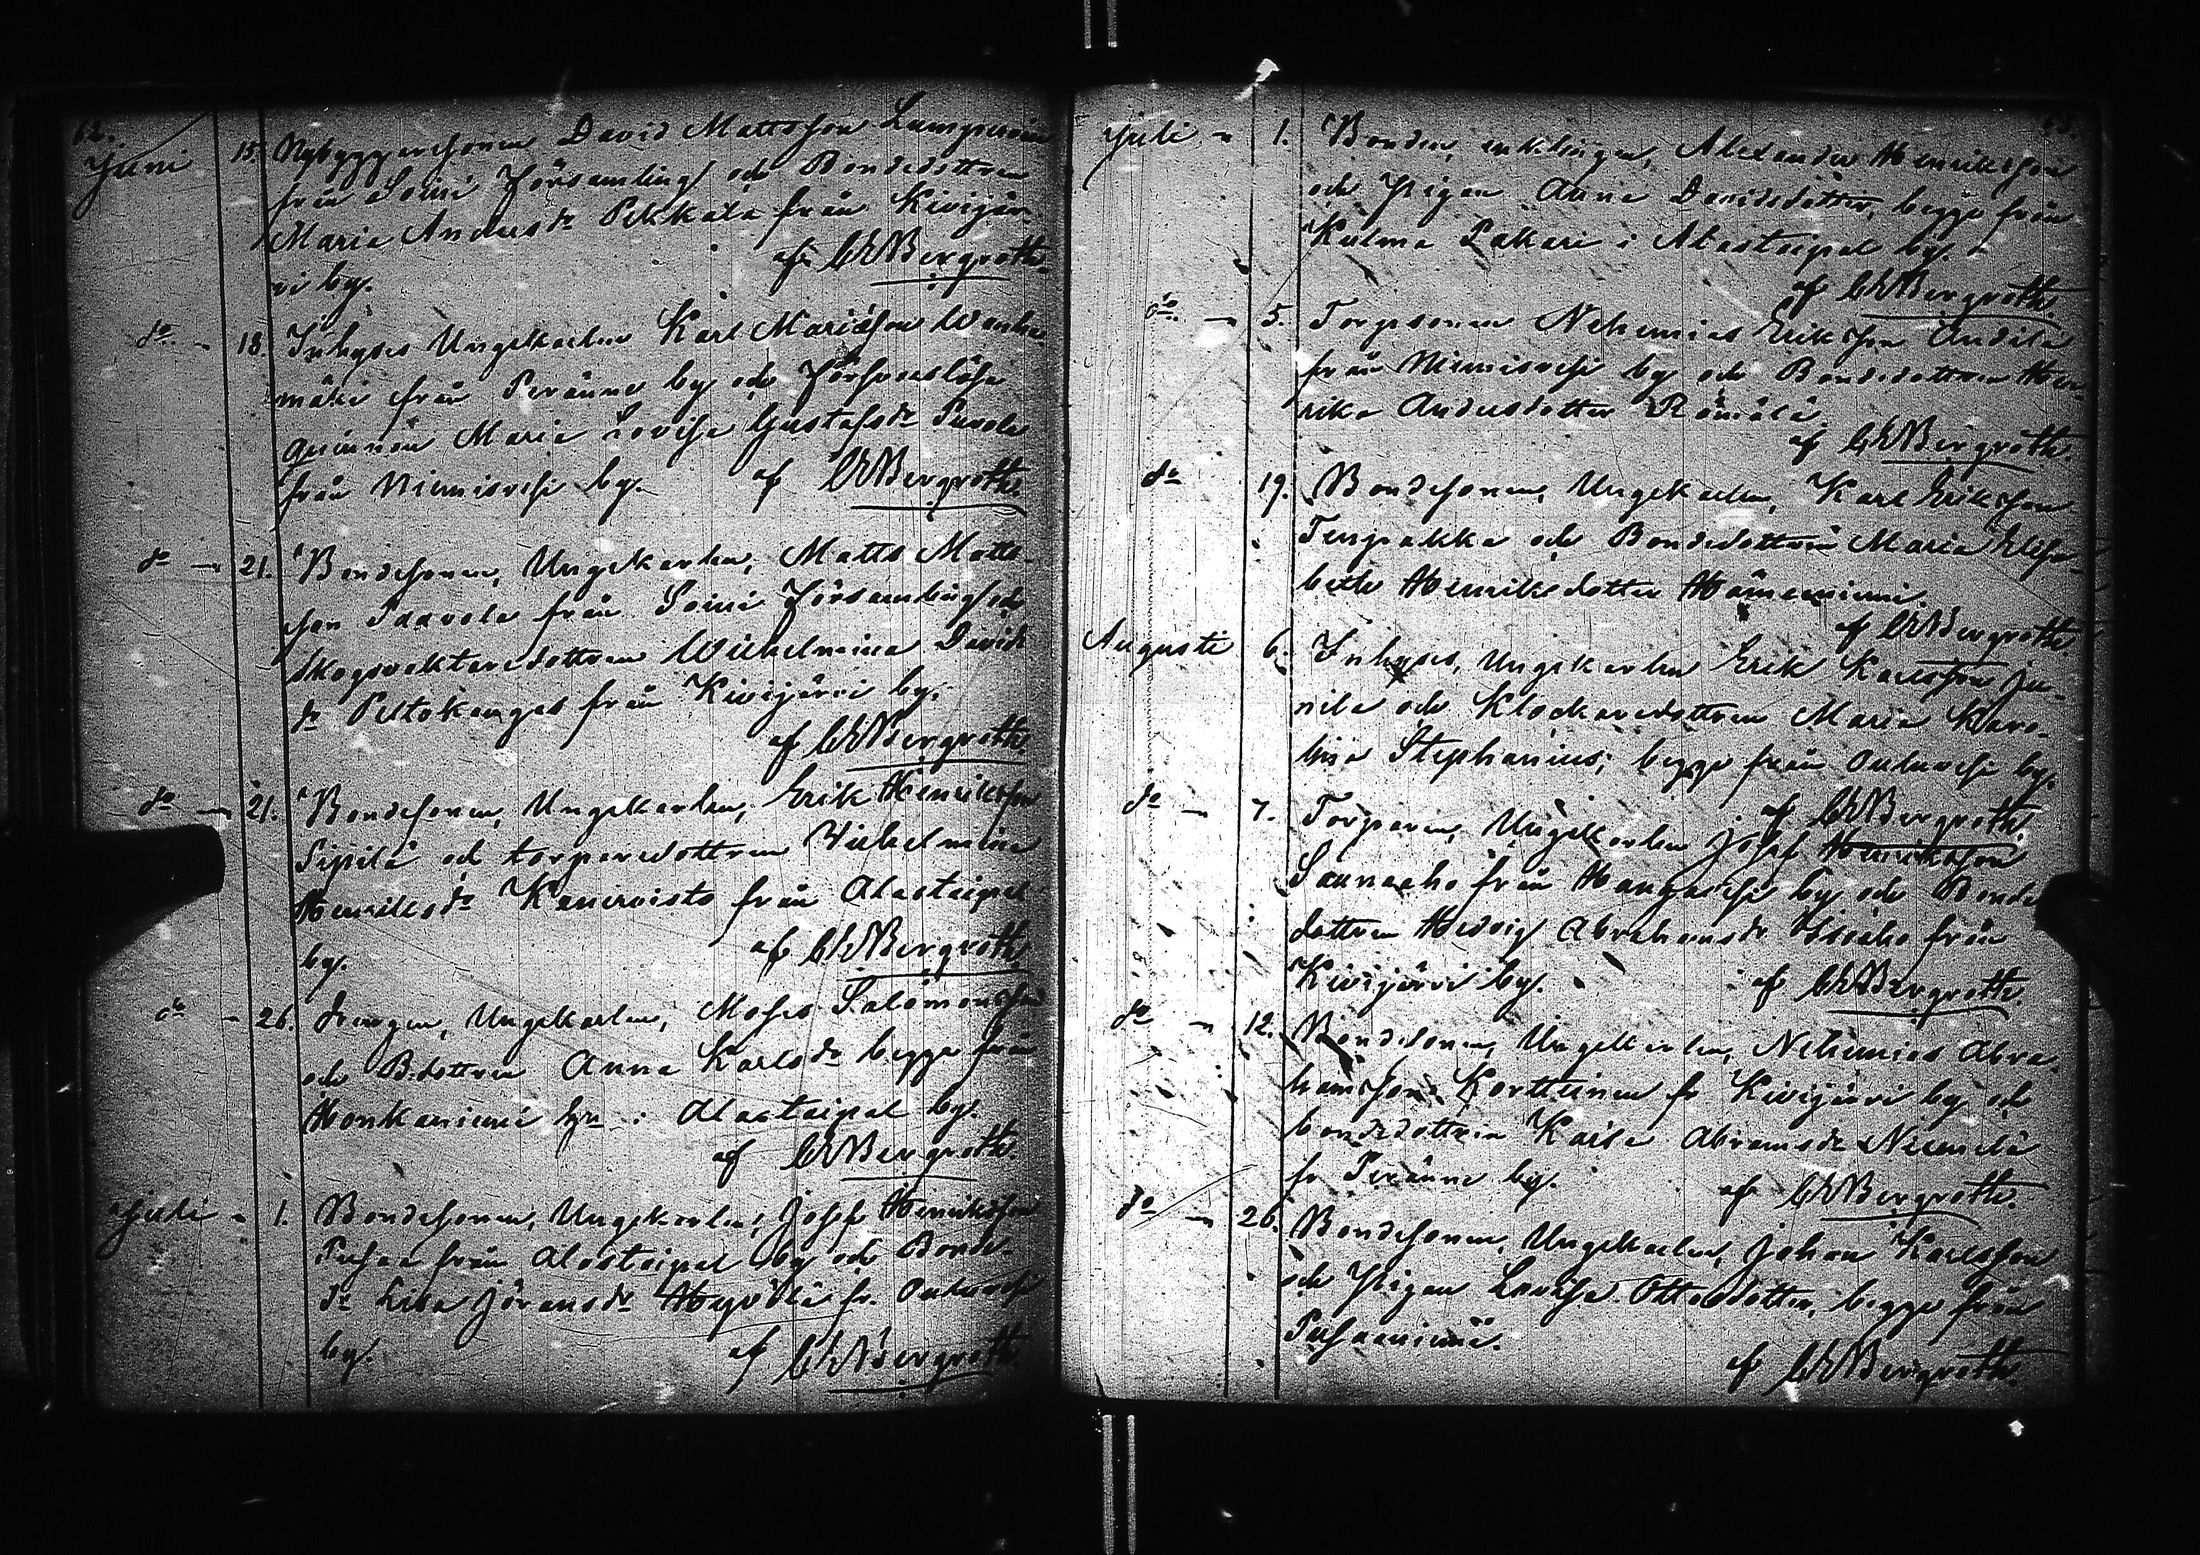 62.
Juni 15. Nybyggaresonen David Mattsson Lamperoin
från Soini Församling och Bondedottren
Maria Andersdr Pekkala från Kivijär-
vi by.
af C E Bergroth.
do. 18. Inhyses Ungekarlen Karl Mariasson Wanha
mäki från Peränne by och Försvarslösa
qvinnan Maria Lovisa Gustafsdr Puvola
från Niemisvesi by. af C E Bergroth.
do 21. Bondesonen, Ungekarlen, Matts Matts-
son Paavola från Soini Församling och
Skogsvaktaredottren Wilhelmina Davids
dr Peltokangas från Kivijärvi by.
af C E Bergroth
do 21. Bondesonen, Ungekarlen, Erik Henriksson
Sipilä och torparedottren Wilhelmina
Henriksdr Kanervisto från Alastaipal
by.
af C E Bergroth
do 26. Drengen, Ungekarlen, Moses Salomonsson
och B.dottren Anna Karlsdr begge från
Honkaniemi hn i Alastaipal by.
af C E Bergroth.
Juli 1. Bondesonen, Ungekarlen, Josef Henriksson
Pusaa från Alastaipal by och Bonde-
dr Lisa Jöransdr Hepolä fr. Oulunsi
by.
af C E Bergroth.
63.
Juli 1. Bonden, enklingen, Alexander Henriksson
och Pigan Anna Davidsdotter, begge från
Kulma Pakari i Alastaipal by.
af C E Bergroth.
do. 5. Torpsonen Nehemias Eriksson Andila
från Niemisvesi by och Bondedottren Hen-
rika Andersdotter Rämälä
af C E Bergroth.
do 19. Bondesonen, Ungekarlen, Karl Eriksson
Tengakka och Bondedottren Maria Elisa-
beth Henriksdotter Hämeniemi.
af C E Bergroth
Augusti 6. Inhyses, Ungekarlen Erik Karlsson Ju-
nila och Klockaredottren Maria Karo-
lina Stephanius; begge från Oulunsi by.
af C E Bergroth.
do 7. Torparen, Ungekarlen Josef Henriksson
Saunaaho från Hangasvesi by och Bonde
dottren Hedvig Abrahamsdr Isoaho från
Kivijärvi by. af C E Bergroth.
do 12. Bondesonen, Ungekarlen, Nehemias Abra-
hamsson Korttinen fr Kivijärvi by och
bondedottren Kaisa Abramsdr Niemelä
fr Peränne by. af C E Bergroth.
do 26. Bondesonen, Ungekarlen, Johan Karlsson
och Pigan Lovisa Ottosdotter, begge från
Pusaaniemi.
af C E Bergroth.